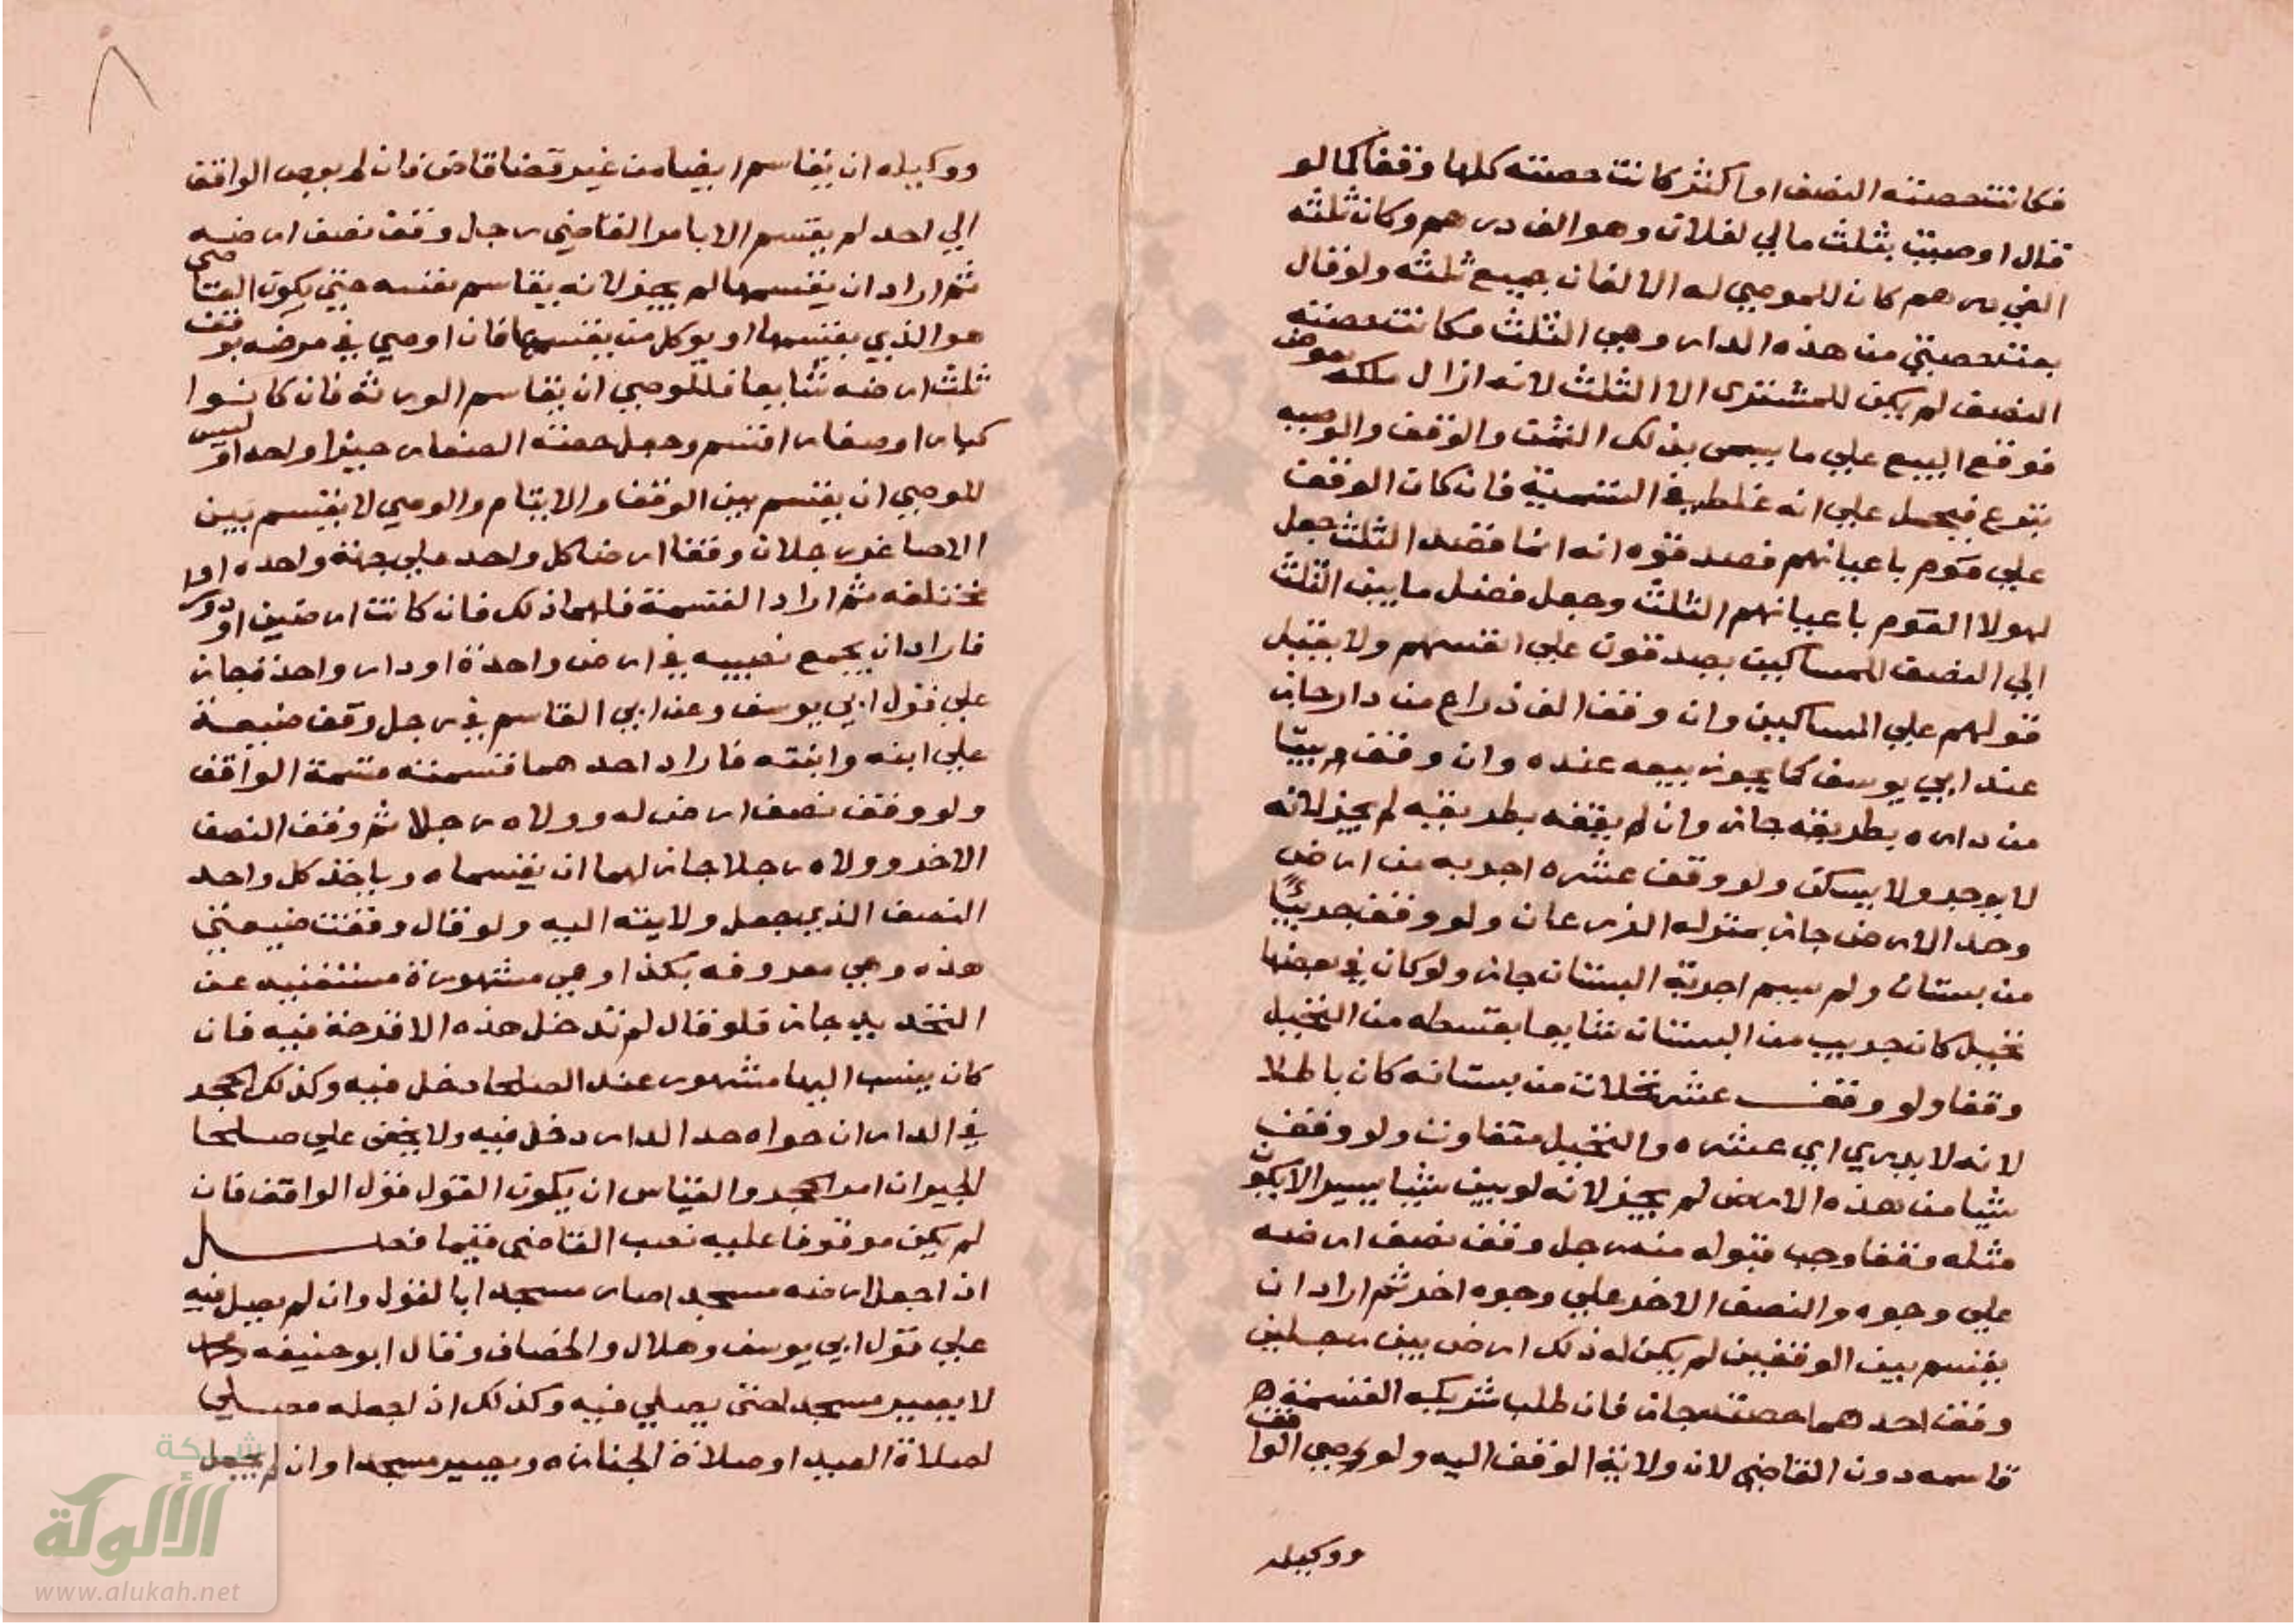 فكانت حصته النصف او اكثر كانت حصته كلها وقفا كما لو
قال اوصيت بثلث مالي لفلان وهو الف درهم وكان ثلثه
الفي درهم كان للموصي له الالفان جميع ثلثه ولو قال
بعت حصتي من هذه الدار وهي الثلث فكانت حصته
النصف لم يكن للمشتري الا الثلث لانه ازال ملكه بعوض
فوقع البيع علي ما يسمي بذلك الثمن والوقف والوصيه
تبرع فيحمل علي انه غلط في التسمية فان كان الوقف
علي قوم باعيانهم فصدقوه انه انما قصد الثلث جعل
لهولا القوم باعيانهم الثلث وجعل فضل ما بين الثلث
الي النصف للمساكين يصدقون علي انفسهم ولا يقبل
قولهم علي المساكين وان وقف الف ذراع من دار جاز
عند ابي يوسف كما يجوز بيعه عنده وان وقف بيتا
من داره بطريقه جاز وان لم يقفه بطريقه لم يجز لانه
لا يوجر ولا يسكن ولو وقف عشره اجربه من ارض
وحد الارض جاز بمنزله الذرعان ولو وقف جريبًا
من بستان ولم يسم اجربة البستان جاز ولو كان في بعضها
نخيل كان جريب من البستان شايعا بقسطه من النخيل
وقفا ولو وقف عشر نخلات من بستانه كان باطلا
لانه لا يدري اي عشره والنخيل متفاوت ولو وقف
شيا من هذه الارض لم يجز لانه لو بين شيا يسيرا لا يكون
مثله وقفا وجب قبوله منه رجل وقف نصف ارضه
علي وجوه والنصف الاخر علي وجوه اخر ثم اراد ان
يقسم بين الوقفين لم يكن له ذلك ارض بين رجلين
وقف احدهما حصته جاز فان طلب شريكه القسمة
قاسمه دون القاضي لان ولاية الوقف اليه ولو وصي الواقف
ووكيله
ووكيله ان يقاسم ايضا من غير قضا قاض فان لم يوص الواقف
الي احد لم يقتسم الا بامر القاضي رجل وقف نصف ارضه
ثم اراد ان يقسمها لم يجز لانه يقاسم نفسه حتي يكون القاضي
هو الذي يقسمها او يوكل من يقسمها فان اوصي في مرضه بوقف
ثلث ارضه شايعا فللوصي ان يقاسم الورثه فان كانوا
كبار او صغار اقتسم وجعل حصة الصغار حيزا واحدا وليس
للوصي ان يقسم بين الوقف والايتام والوصي لا يقسم بين
الاصاغر رجلان وقفا ارضا كل واحد علي جهة واحده او
مختلفه ثم اراد القسمة فلهما ذلك فان كانت ارضين او دور
فاراد ان يجمع نصيبيه في ارض واحدة او دار واحدة جاز
علي قول ابي يوسف وعن ابي القاسم في رجل وقف ضيعة
علي ابنه وابنته فاراد احدهما قسمته قسمة الواقف
ولو وقف نصف ارض له وولاه رجلا ثم وقف النصف
الاخر وولاه رجلا جاز لهما ان يقسماه وياخذ كل واحد
النصف الذي جعل ولايته اليه ولو قال وقفت ضيعتي
هذه وهي معروفه بكذا وهي مشهورة مستغنيه عن
التحديد جاز فلو قال لم تدخل هذه الاقرحة فيه فان
كان ينسب اليها مشهور عند الصلحا دخل فيه وكذلك الحجر
في الدار ان حواه حد الدار دخل فيه ولا يخفي علي صلحا
الجيران امر الحجر والقياس ان يكون القول قول الواقف فان
لم يكن موقوفا عليه نصب القاضي قيما فصل
اذا جعل ارضه مسجدا صار مسجدا بالقول وان لم يصل فيه
علي قول ابي يوسف وهلال والخصاف وقال ابو حنيفه ومحمد
لا يصير مسجدا حتي يصلي فيه وكذلك اذا جعله مصلي
لصلاة العيد او صلاة الجنازه ويصير مسجدا وان لم يجعل
شبكة
الألوكة
www.alukah.net